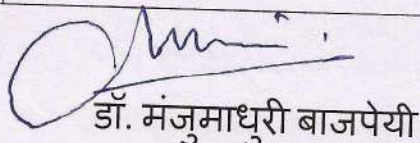 डॉ. मंजुमाधुरी बाजपेयी